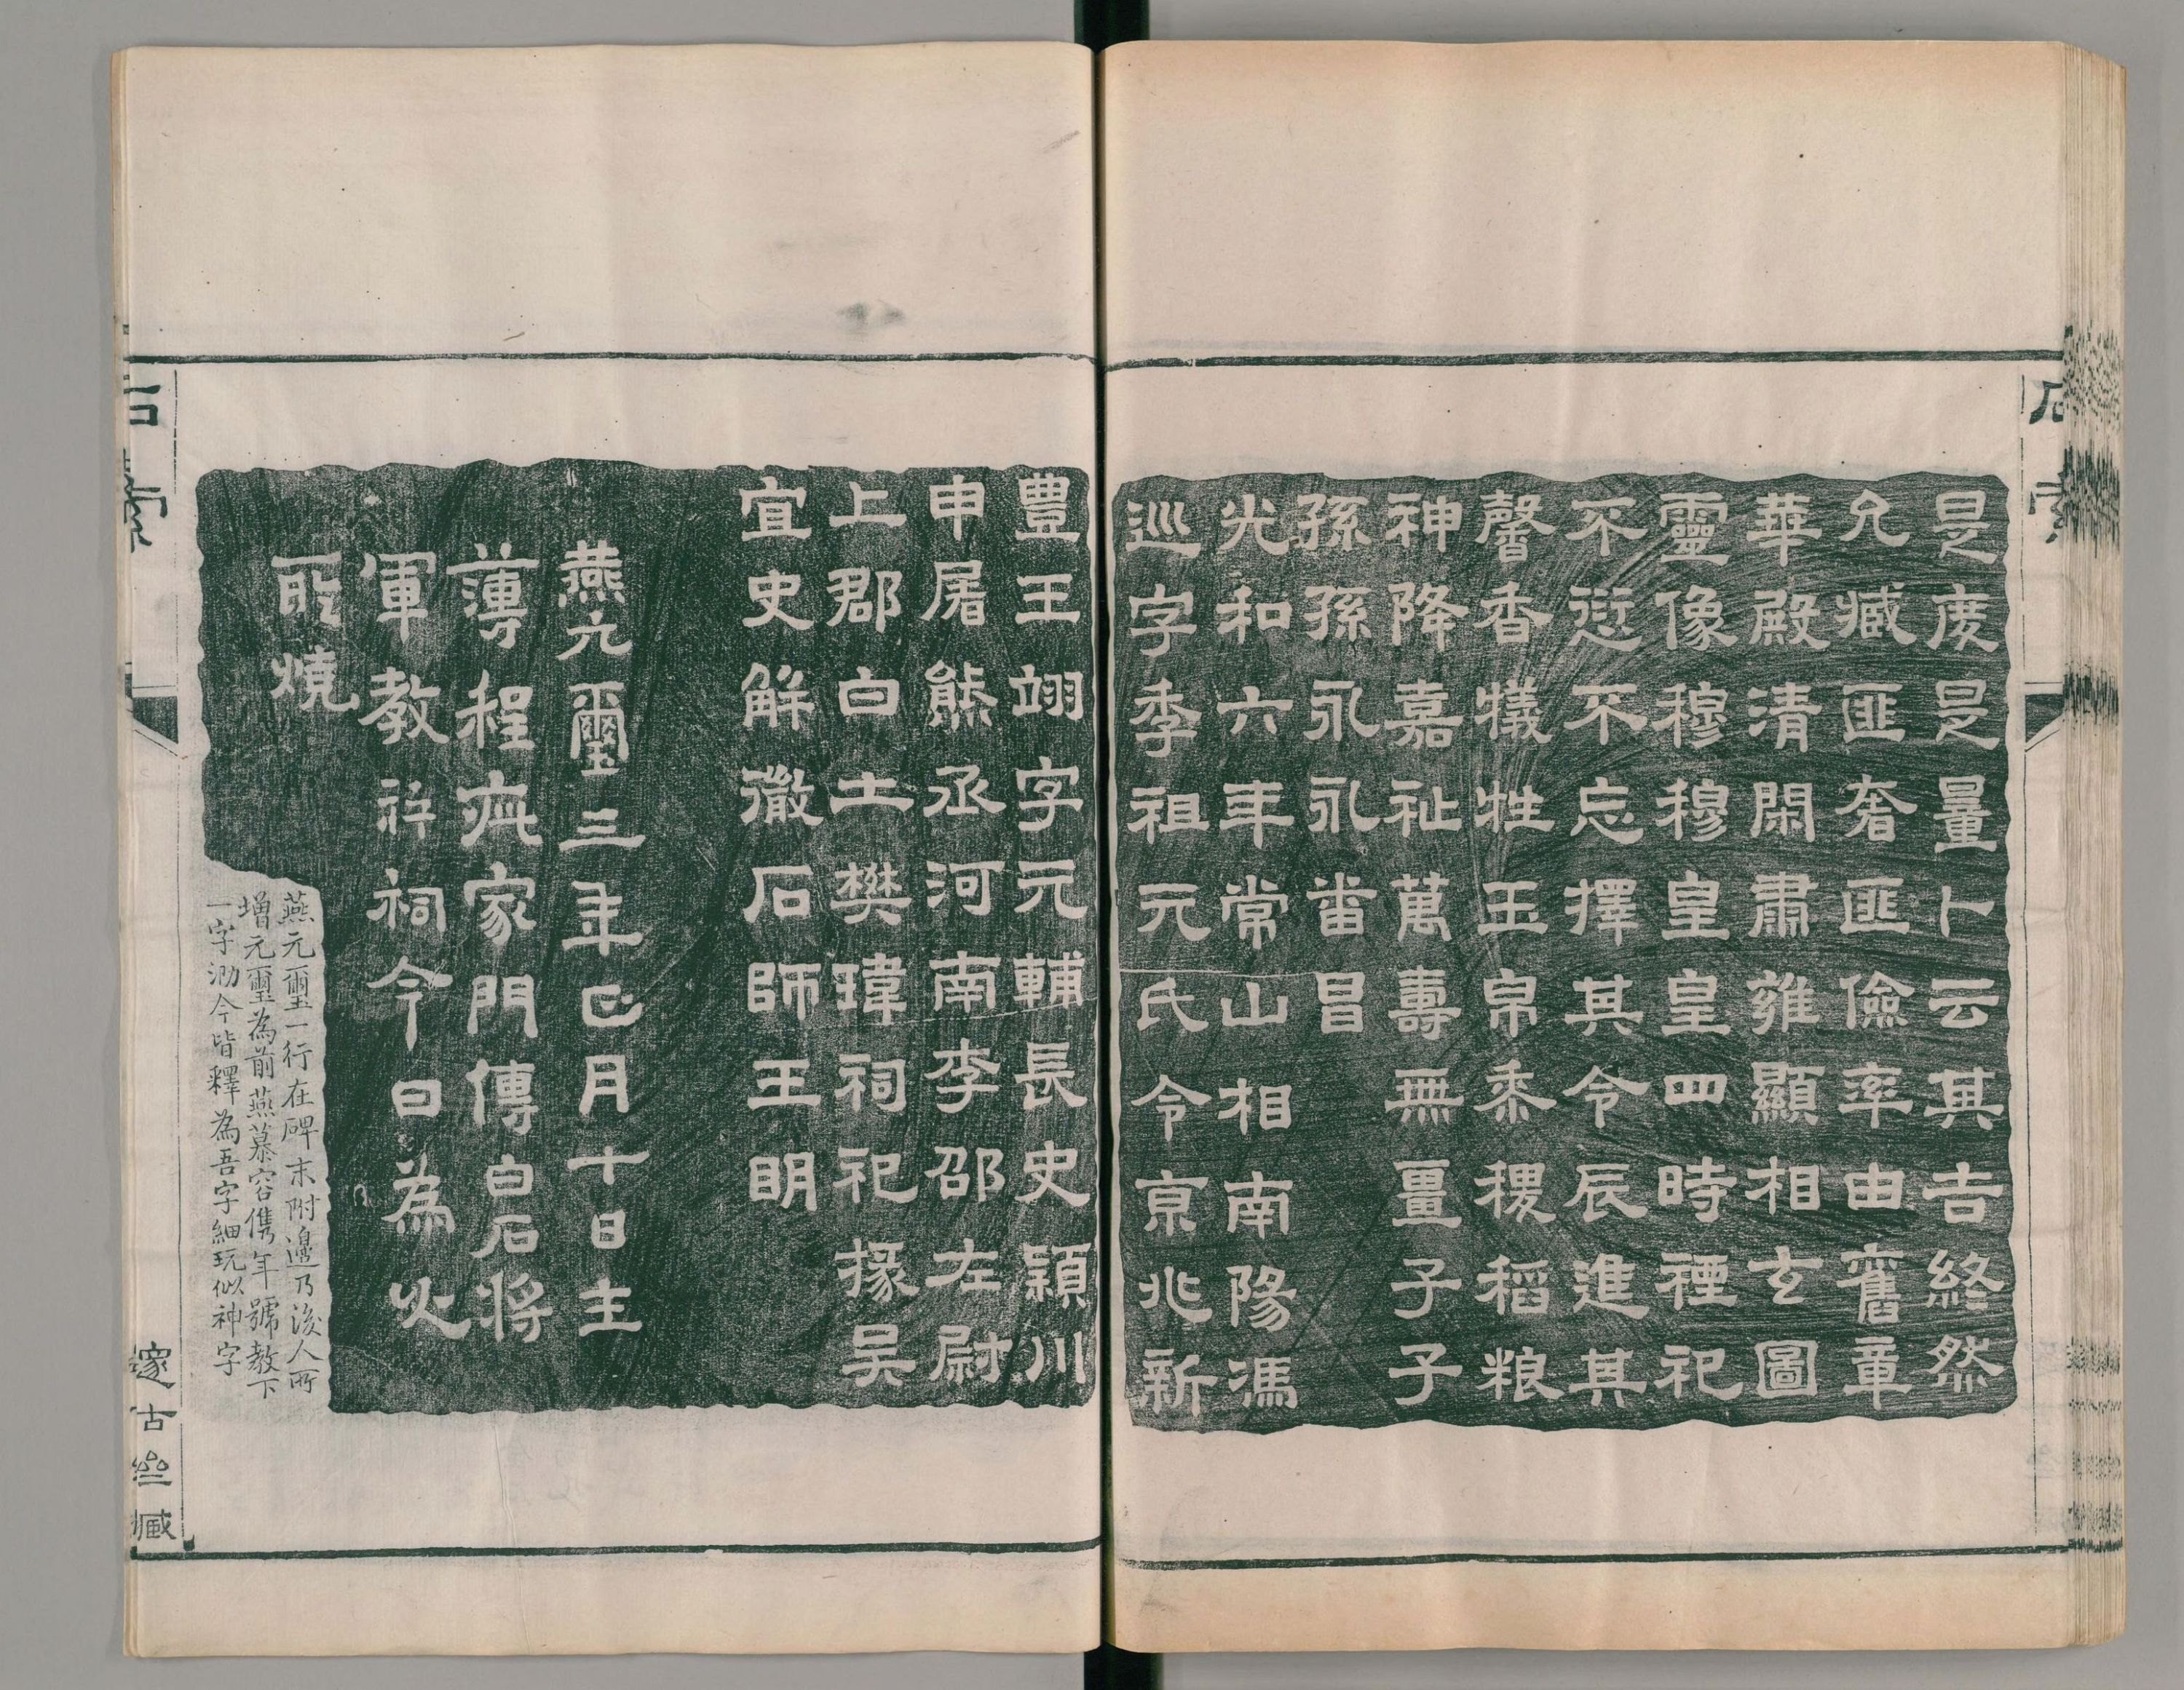 石索
是度是量卜云其吉終然
允臧匪奢匪儉率由舊章
華殿清閑肅雍顯相玄圖
靈像穆穆皇皇四時禋祀
不愆不忘擇其令辰進其
馨香犧牲玉帛黍稷稻粮
神降嘉祉萬壽無畺子子
孫孫永永畨昌
光和六年常山相南陽馮
巡字季祖元氏令京兆新
豊王翊字元輔長史潁川
申屠熊丞河南李邵左尉
上郡白土樊瑋祠祀掾吴
宜史解徽石師王明
燕元璽三年正月十日主
薄程疵家門傳白石將
軍教祠今日為火
所燒
燕元璽一行在碑末附邊乃後人所
增元璽為前燕慕容儁年號教下
一字泐今皆釋為吾字細玩似神字
石索
邃古亝臧